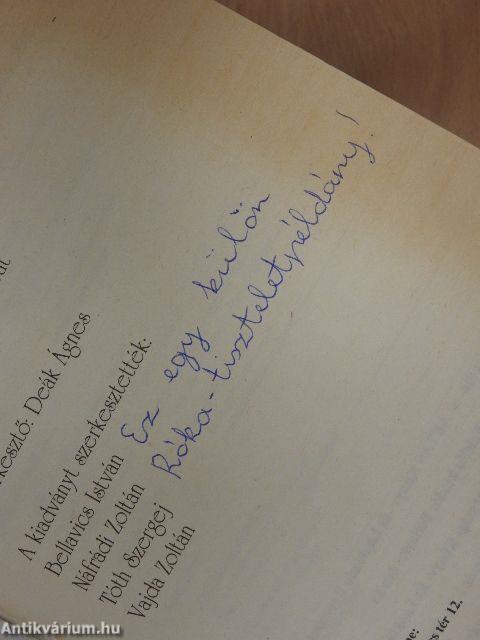 rkesztő: Deák Ágnes
A kiadványt szerkesztették:
Bellavics István
Náfrádi Zoltán
Tóth Szergej
Vajda Zoltán
Ez egy külön
Róka-tiszteletpéldány!
s tér 12.
Antikvárium.hu